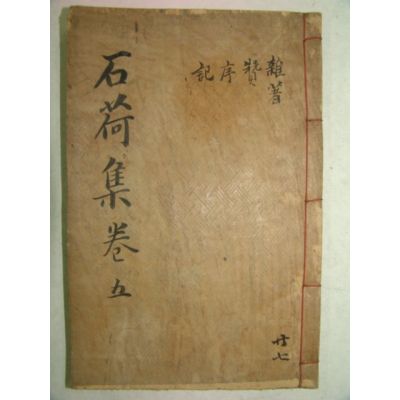 雜著
贊
序
記
石荷集卷五
共七